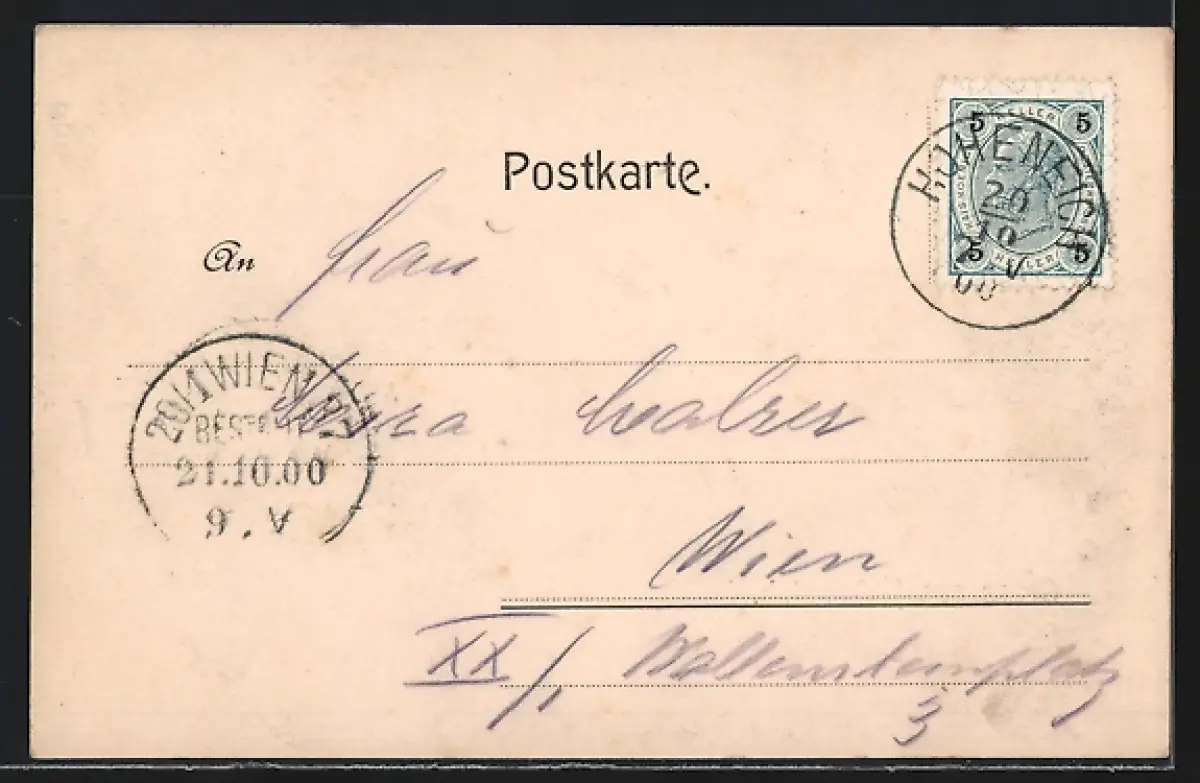 Postkarte.
5 HELLER 5
5 HELLER 5
HOHENEICH
20
10
V
00
An Frau
Walzer
20/1 WIEN
BESTELLT
21.10.00
9. V
Wien
XX/1 Wallensteinplatz
3